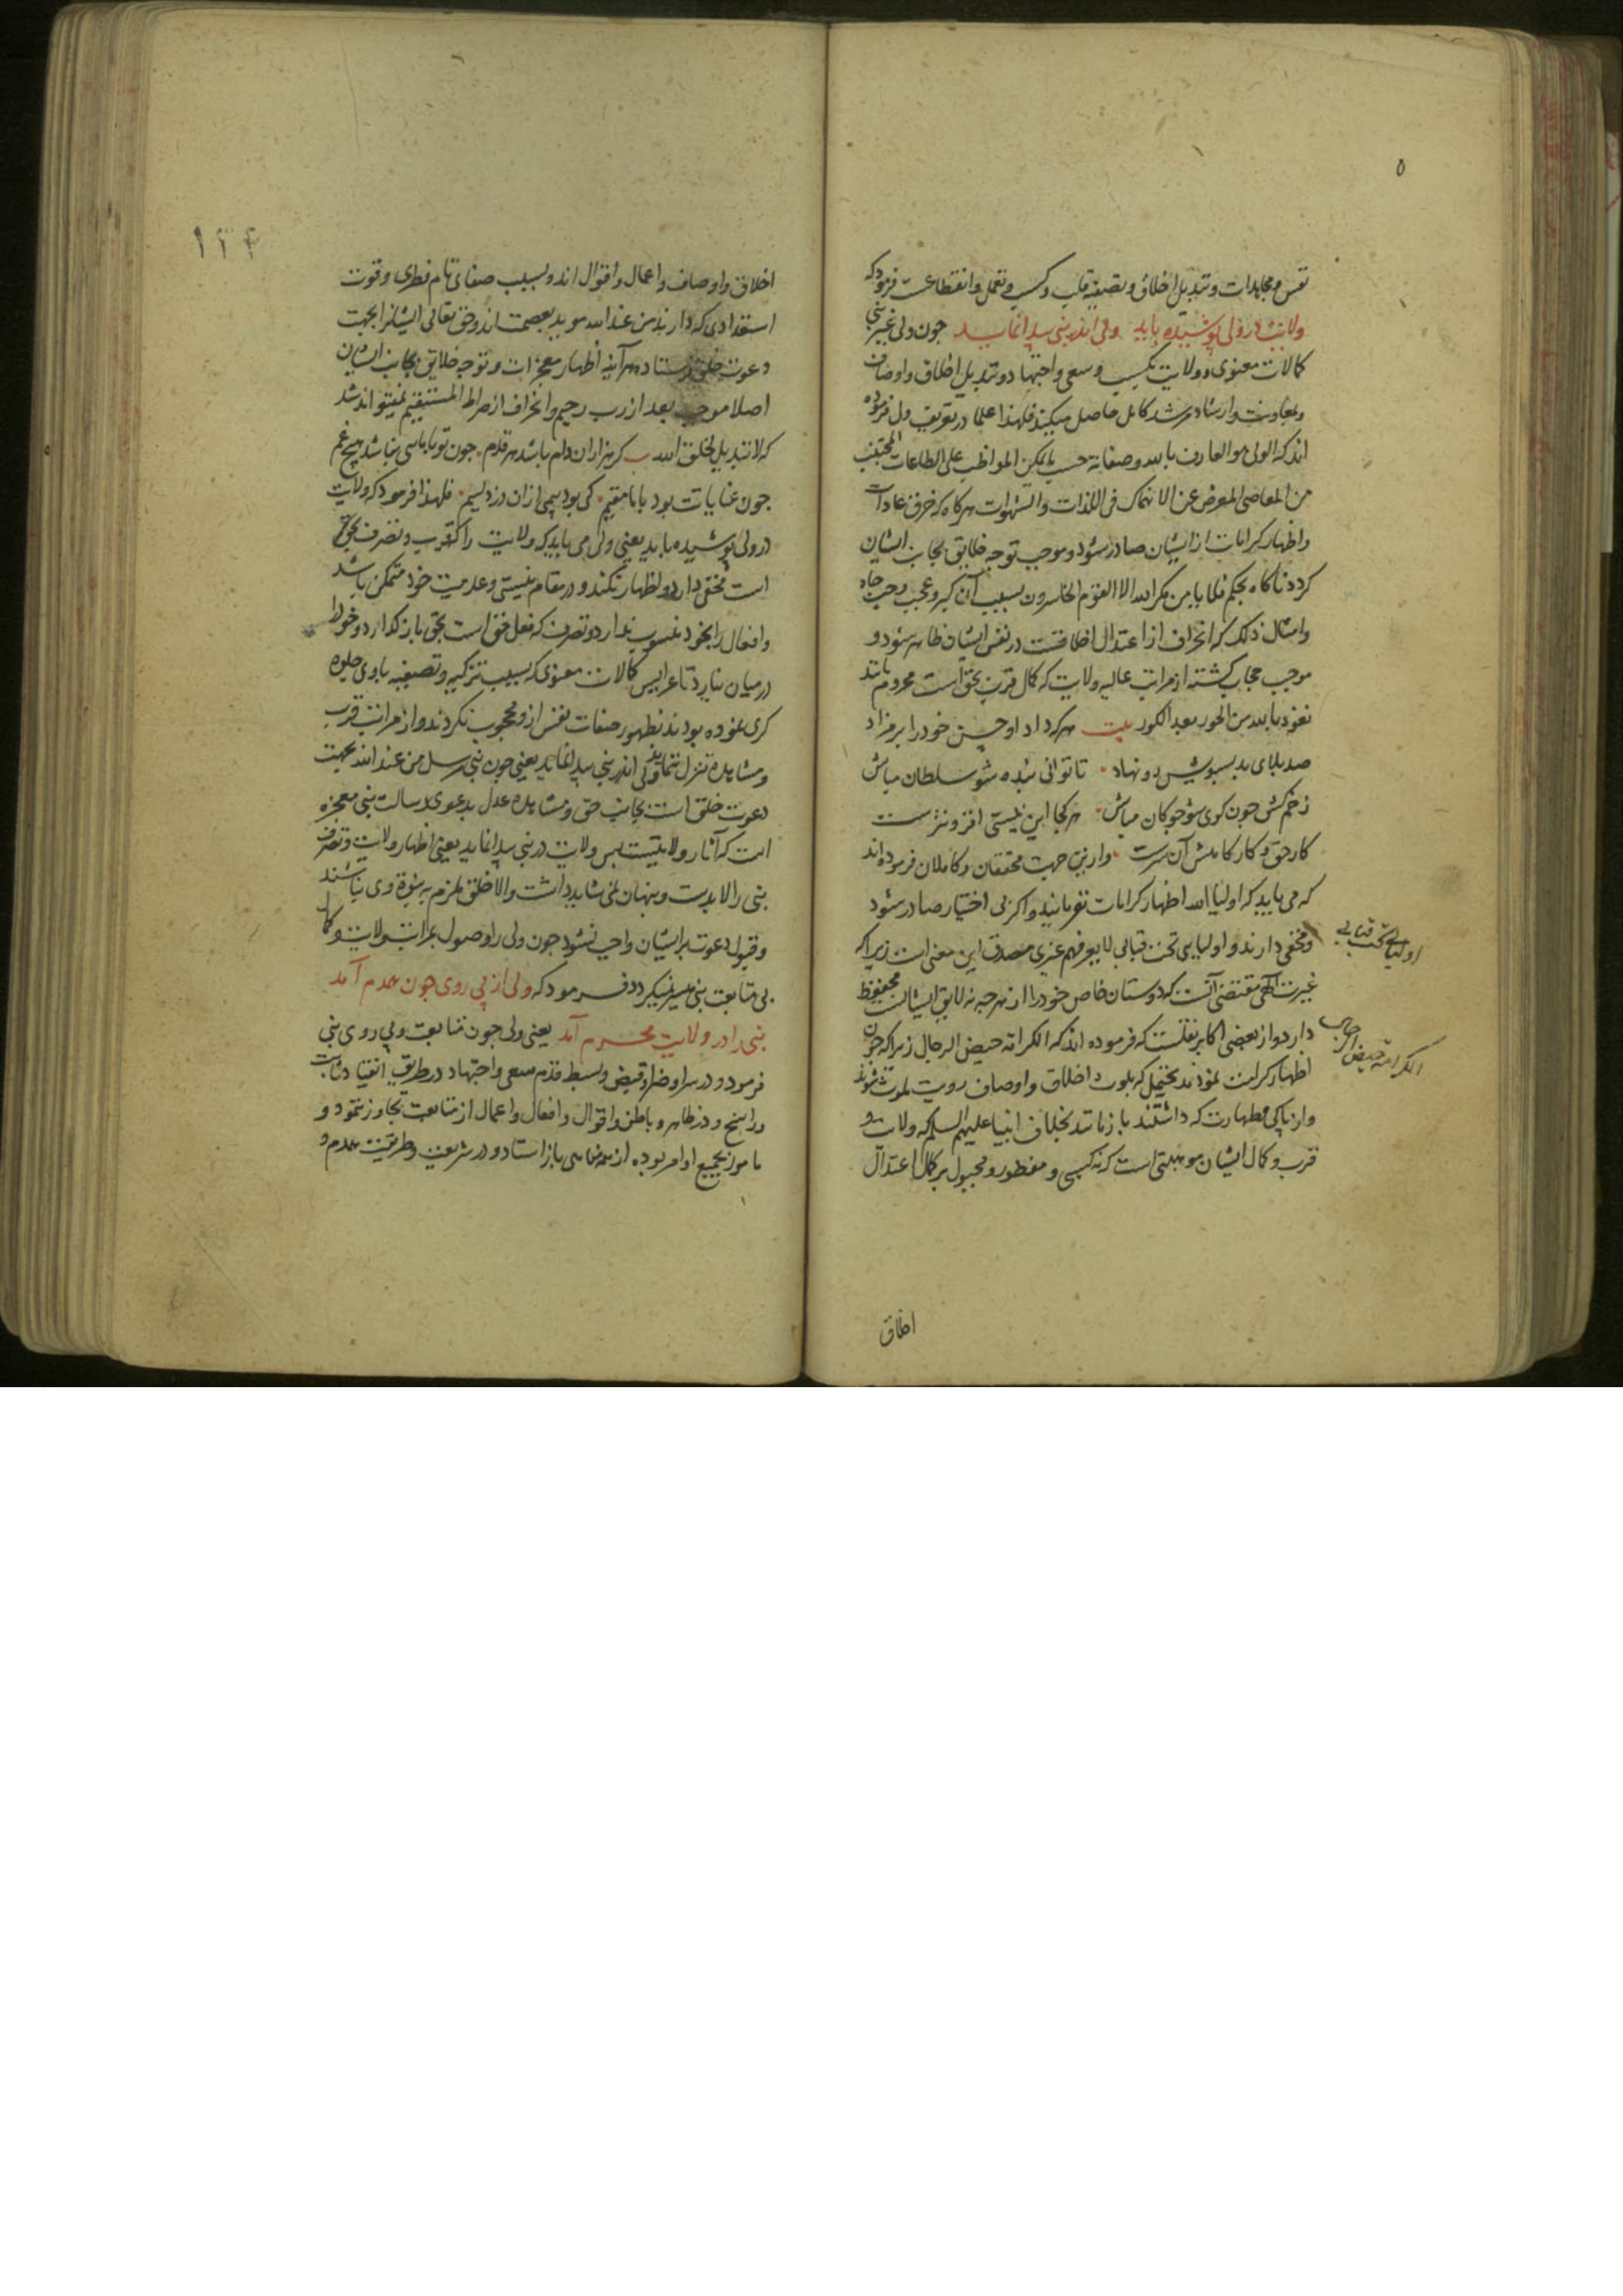 ۵
نفس و مجاهدات و تبدیل اخلاق و تصفیه قلب و کسب و تعمل و انقطاعست فرمود که
ولایت در ولی پوشیده باید ولی اندر نبی پیدا نماید چون ولی غیر نبی
کمالات معنوی و ولایت بکسب و سعی و اجتهاد و تبدیل اخلاق و اوصاف
و بمعاونت و ارشاد مرشد کامل حاصل میکند فلهذا علما در تعریف ولی فرموده
اند که الولی هو العارف بالله و صفاته حسب ما یمکن المواظب علی الطاعات المجتنب
من المعاصی المعرض عن الانهماک فی اللذات والشهوات هرگاه که خرق عادات
و اظهار کرامات از ایشان صادر شود و موجب توجه خلایق بجانب ایشان
گردد ناگاه بحکم فلا یامن مکر الله الا القوم الخاسرون بسبب آن کبر و عجب و حب جاه
و امثال ذلک که انحراف از اعتدال اخلاقست در نفس ایشان ظاهر شود و
موجب حجاب گشته از مراتب عالیه ولایت که کمال قرب بحق است محروم مانند
نعوذ بالله من الحور بعد الکور بیت هرکه داد او حسن خود را بر مزاد
صد بلای بد بسویش رو نهاد تا توانی بنده شو سلطان مباش
زخم کش چون گوی شو چوگان مباش هر کجا این نیستی افزونترست
کار حق و کارگاهش آن سرست و ازین جهت محققان و کاملان فرموده اند
که می باید که اولیا الله اظهار کرامات نفرمایند و اگر بی اختیار صادر شود
و مخفی دارند و اولیایی تحت قبابی لا یعرفهم غیری مصدق این معنی است زیرا که
اولیائی تحت قبابی
غیرت الهی مقتضی آنست که دوستان خاص خود را از هرچه نه لایق ایشانست محفوظ
دارد و از بعضی اکابر نقلست که فرموده اند که الکرامة حیض الرجال زیرا که چون
الکرامة حیض الرجال
اظهار کرامت نمودند یحتمل که بلوث اخلاق و اوصاف ملوث شوند
و از پاکی و طهارت که داشتند باز مانند بخلاف انبیا علیهم السلم که ولایت و
قرب و کمال ایشان موهبتی است که نه کسبی و مفطور و مجبول بر کمال اعتدال
اخلاق
۱۲۴
اخلاق و اوصاف و اعمال و اقوال اند و بسبب صفای تام فطری و قوت
استعدادی که دارند من عند الله موید بعصمت اند و حق تعالی ایشانرا بجهت
دعوت خلق فرستاد هر آینه اظهار معجزات و توجه خلایق بجانب ایشان
اصلا موجب بعد از رب رحیم و انحراف از صراط المستقیم نمیتواند شد
که لا تبدیل لخلق الله گر هزاران دام باشد هر قدم چون تو با مایی نباشد هیچ غم
چون عنایاتت بود با ما مقیم کی بود بیمی ازان دزد لئیم فلهذا فرمود که ولایت
در ولی پوشیده باید یعنی ولی می باید که ولایت را که قرب و تصرف بحق
است مخفی دارد و اظهار نکند و در مقام نیستی و عدمیت خود متمکن باشد
و افعال را بخود منسوب ندارد و تصرف که فعل حق است بحق باز گذارد و خود را
در میان نیارد تا عرایس کمالات معنوی که بسبب تزکیه و تصفیه با وی جلوه
گری نموده بودند بظهور صفات نفس ازو محجوب نگردند و از مراتب قرب
و مشاهده تنزل ننماید ولی اندر نبی پیدا نماید یعنی چون نبی مرسل من عند الله بجهت
دعوت خلق است بجانب حق و مشاهده عدل بدعوی رسالت نبی معجزه
است که آثار ولایتیست پس ولایت در نبی پیدا نماید یعنی اظهار ولایت و تصرف
نبی را لابدست و پنهان نمی شاید داشت والا خلق ملزم به نبوة وی نباشند
و قبول دعوت بر ایشان واجب نشود چون ولی را وصول بمراتب ولایت و کمال
بی متابعت نبی میسر نمیگردد فرمود که ولی از پی روی چون همدم آمد
نبی را در ولایت محرم آمد یعنی ولی چون متابعت و پی روی نبی
فرمود و در سرا و ضرا و قبض و بسط قدم سعی و اجتهاد در طریق انقیاد ثابت
و راسخ و در ظاهر و باطن و اقوال و افعال و اعمال از متابعت تجاوز ننمود و
مامور بجمیع اوامر بوده از همه مناهی باز استاد و در شریعت و طریقت همدم و